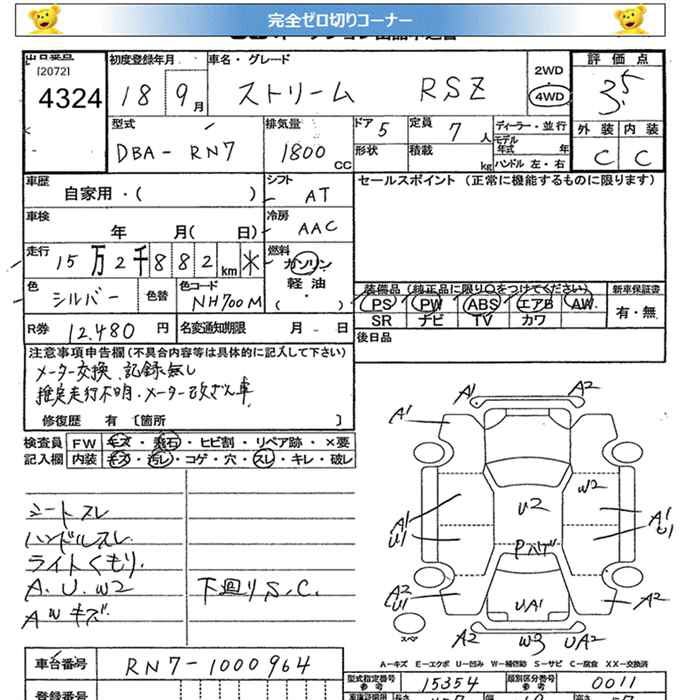 完全ゼロ切りコーナー
[2072]
4324
初度登録年月
18 9月
車名・グレード
ストリーム RSZ
2WD
4WD
評価点
3.5
外装 内装
C C
型式
DBA-RN7
排気量
1800 CC
ドア 5
形状
定員 7 人
積載 kg
ディーラー・並行
モデル年式 年
ハンドル 左・右
車歴
自家用・( )
シフト
AT
車検
年 月( 日)
冷房
AAC
走行
15万2千882km ※
燃料
ガソリン
軽油
( ・ )
色
シルバー
色替
色コード
NH700M
R券
12,480 円
名変通知期限 月 - 日
セールスポイント (正常に機能するものに限ります)
装備品 (純正品に限り○をつけてください)
PS PW ABS エアB AW
SR ナビ TV カワ
新車保証書
有・無
後日品
注意事項申告欄(不具合内容等は具体的に記入して下さい)
メーター交換、記録無し
推定走行不明・メーター改ざん車
修復歴 有 〔箇所 〕
検査員 FW キズ・飛石・ヒビ割・リペア跡・×要
記入欄 内装 キズ・汚レ・コゲ・穴・スレ・キレ・破レ
シートスレ
ハンドルスレ
ライトくもり.
A.U.W2
AWキズ
下廻りS.C.
A1 A2
A1
W2
U2
A1
U1
A1
U1
Pハゲ
A2
U1
UA1
A2
スペ
A2 W3 UA2
A-キズ E-エクボ U-凹み W-補修跡 S-サビ C-腐食 XX-交換済
車台番号
RN7-1000964
型式指定番号 参考 15354
類別区分番号 参考 0011
登録番号